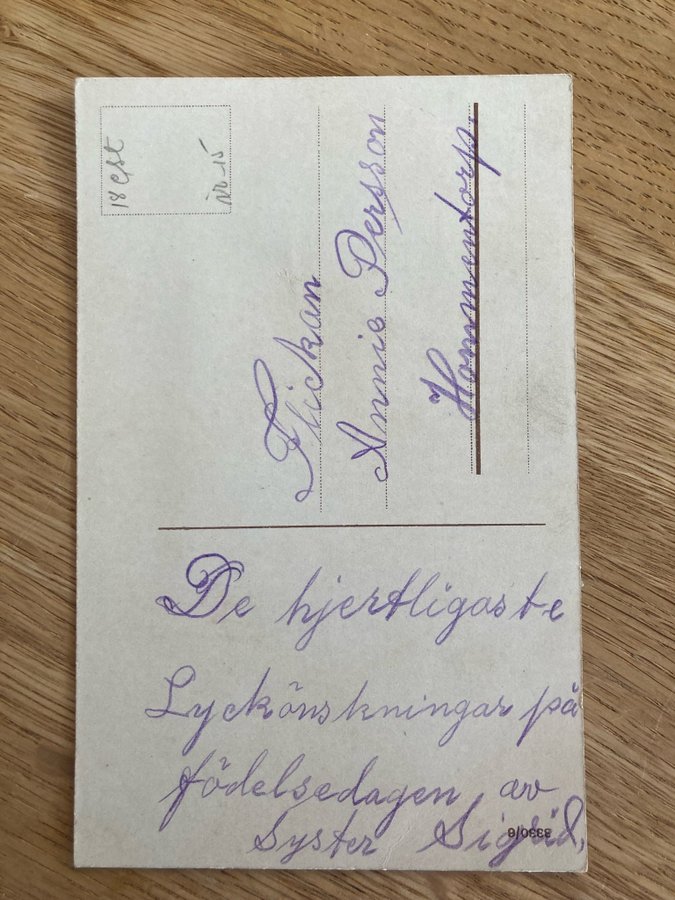 De hjertligaste
Lyckönskningar på
födelsedagen av
Syster Sigrid,
Flickan
Annie Persson
Hommentorp.
nr 15
3330/6